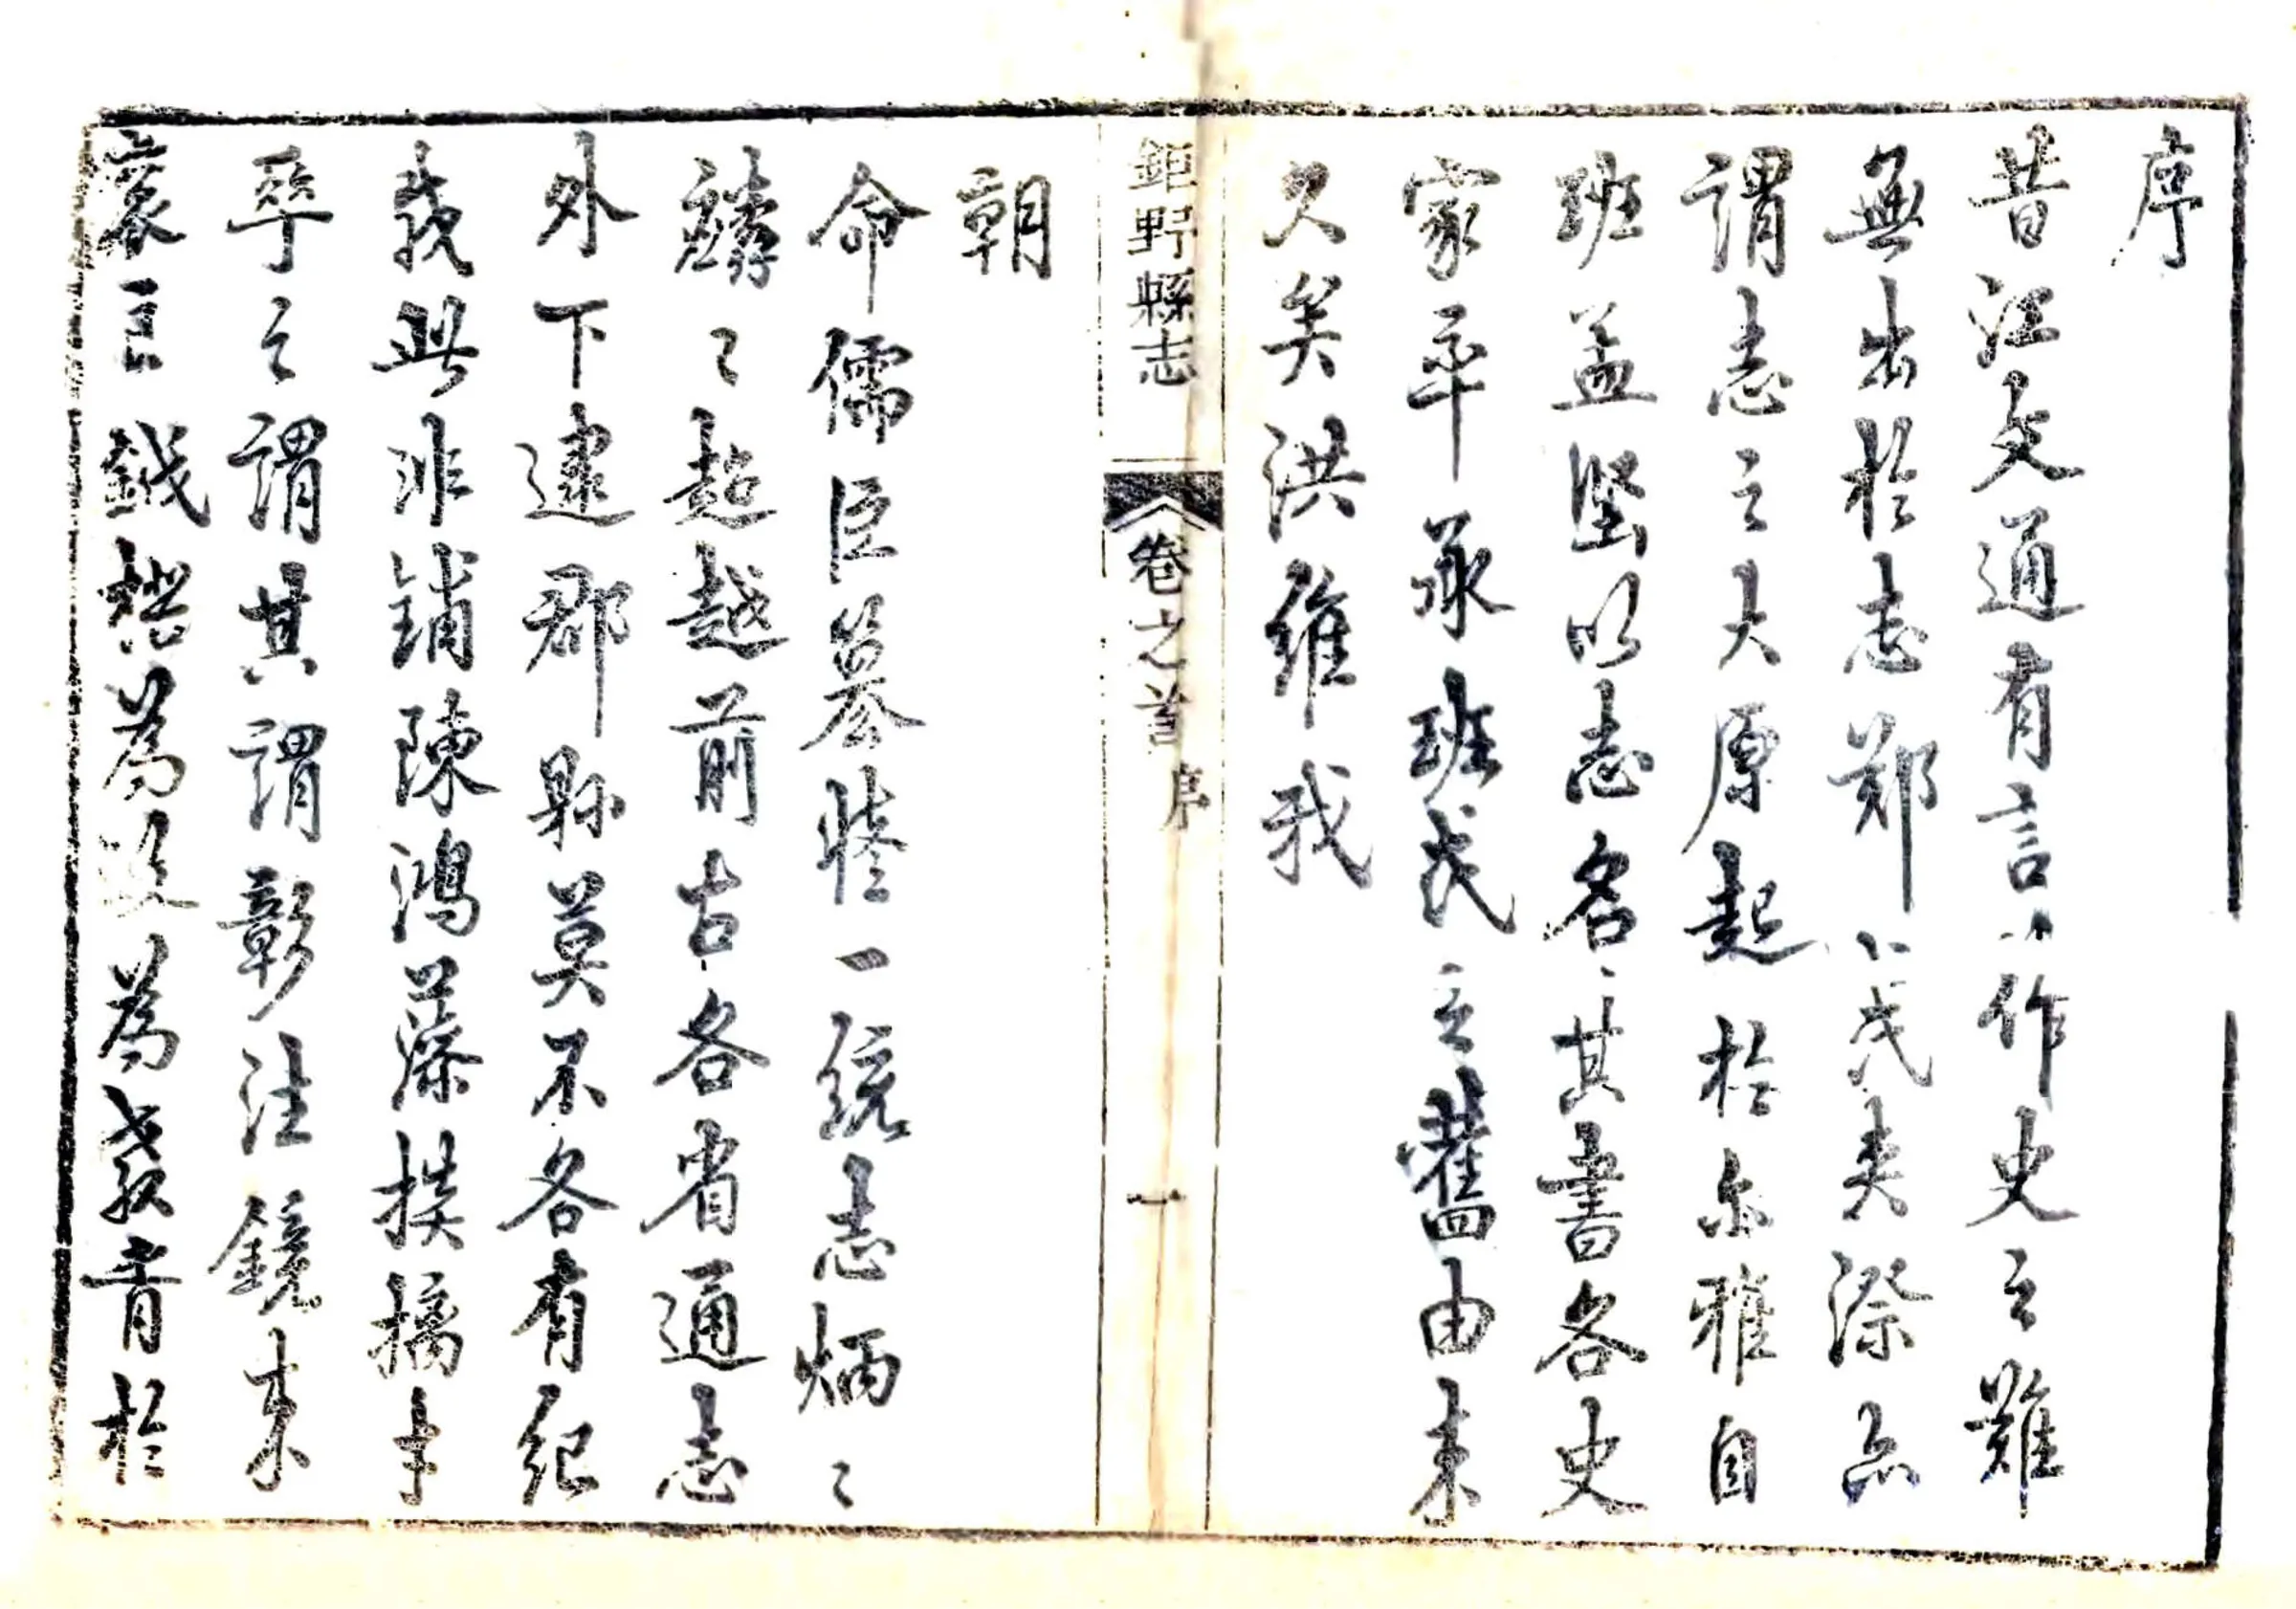 序
昔江文通有言作史之難
無出於志鄭氏夾漈亦
謂志之大原起於尔雅自
班孟堅以志名其書各史
家率承班氏之舊由来
久矣洪維我
鉅野縣志 卷之首 序 一
朝
命儒臣纂脩一統志炳〻
麟〻超越前古各省通志
外下逮郡縣莫不各有紀
載此非鋪陳鴻藻掞摛丰
之謂其謂彰往鏡来
良鉞 為 為 於